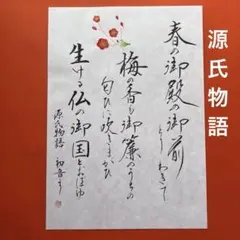 源氏物語
春の御殿の御前
とりわきて
梅の香も御簾のうちの
匂ひに吹きまがひ
生ける仏の御国とおぼゆ
源氏物語 初音より